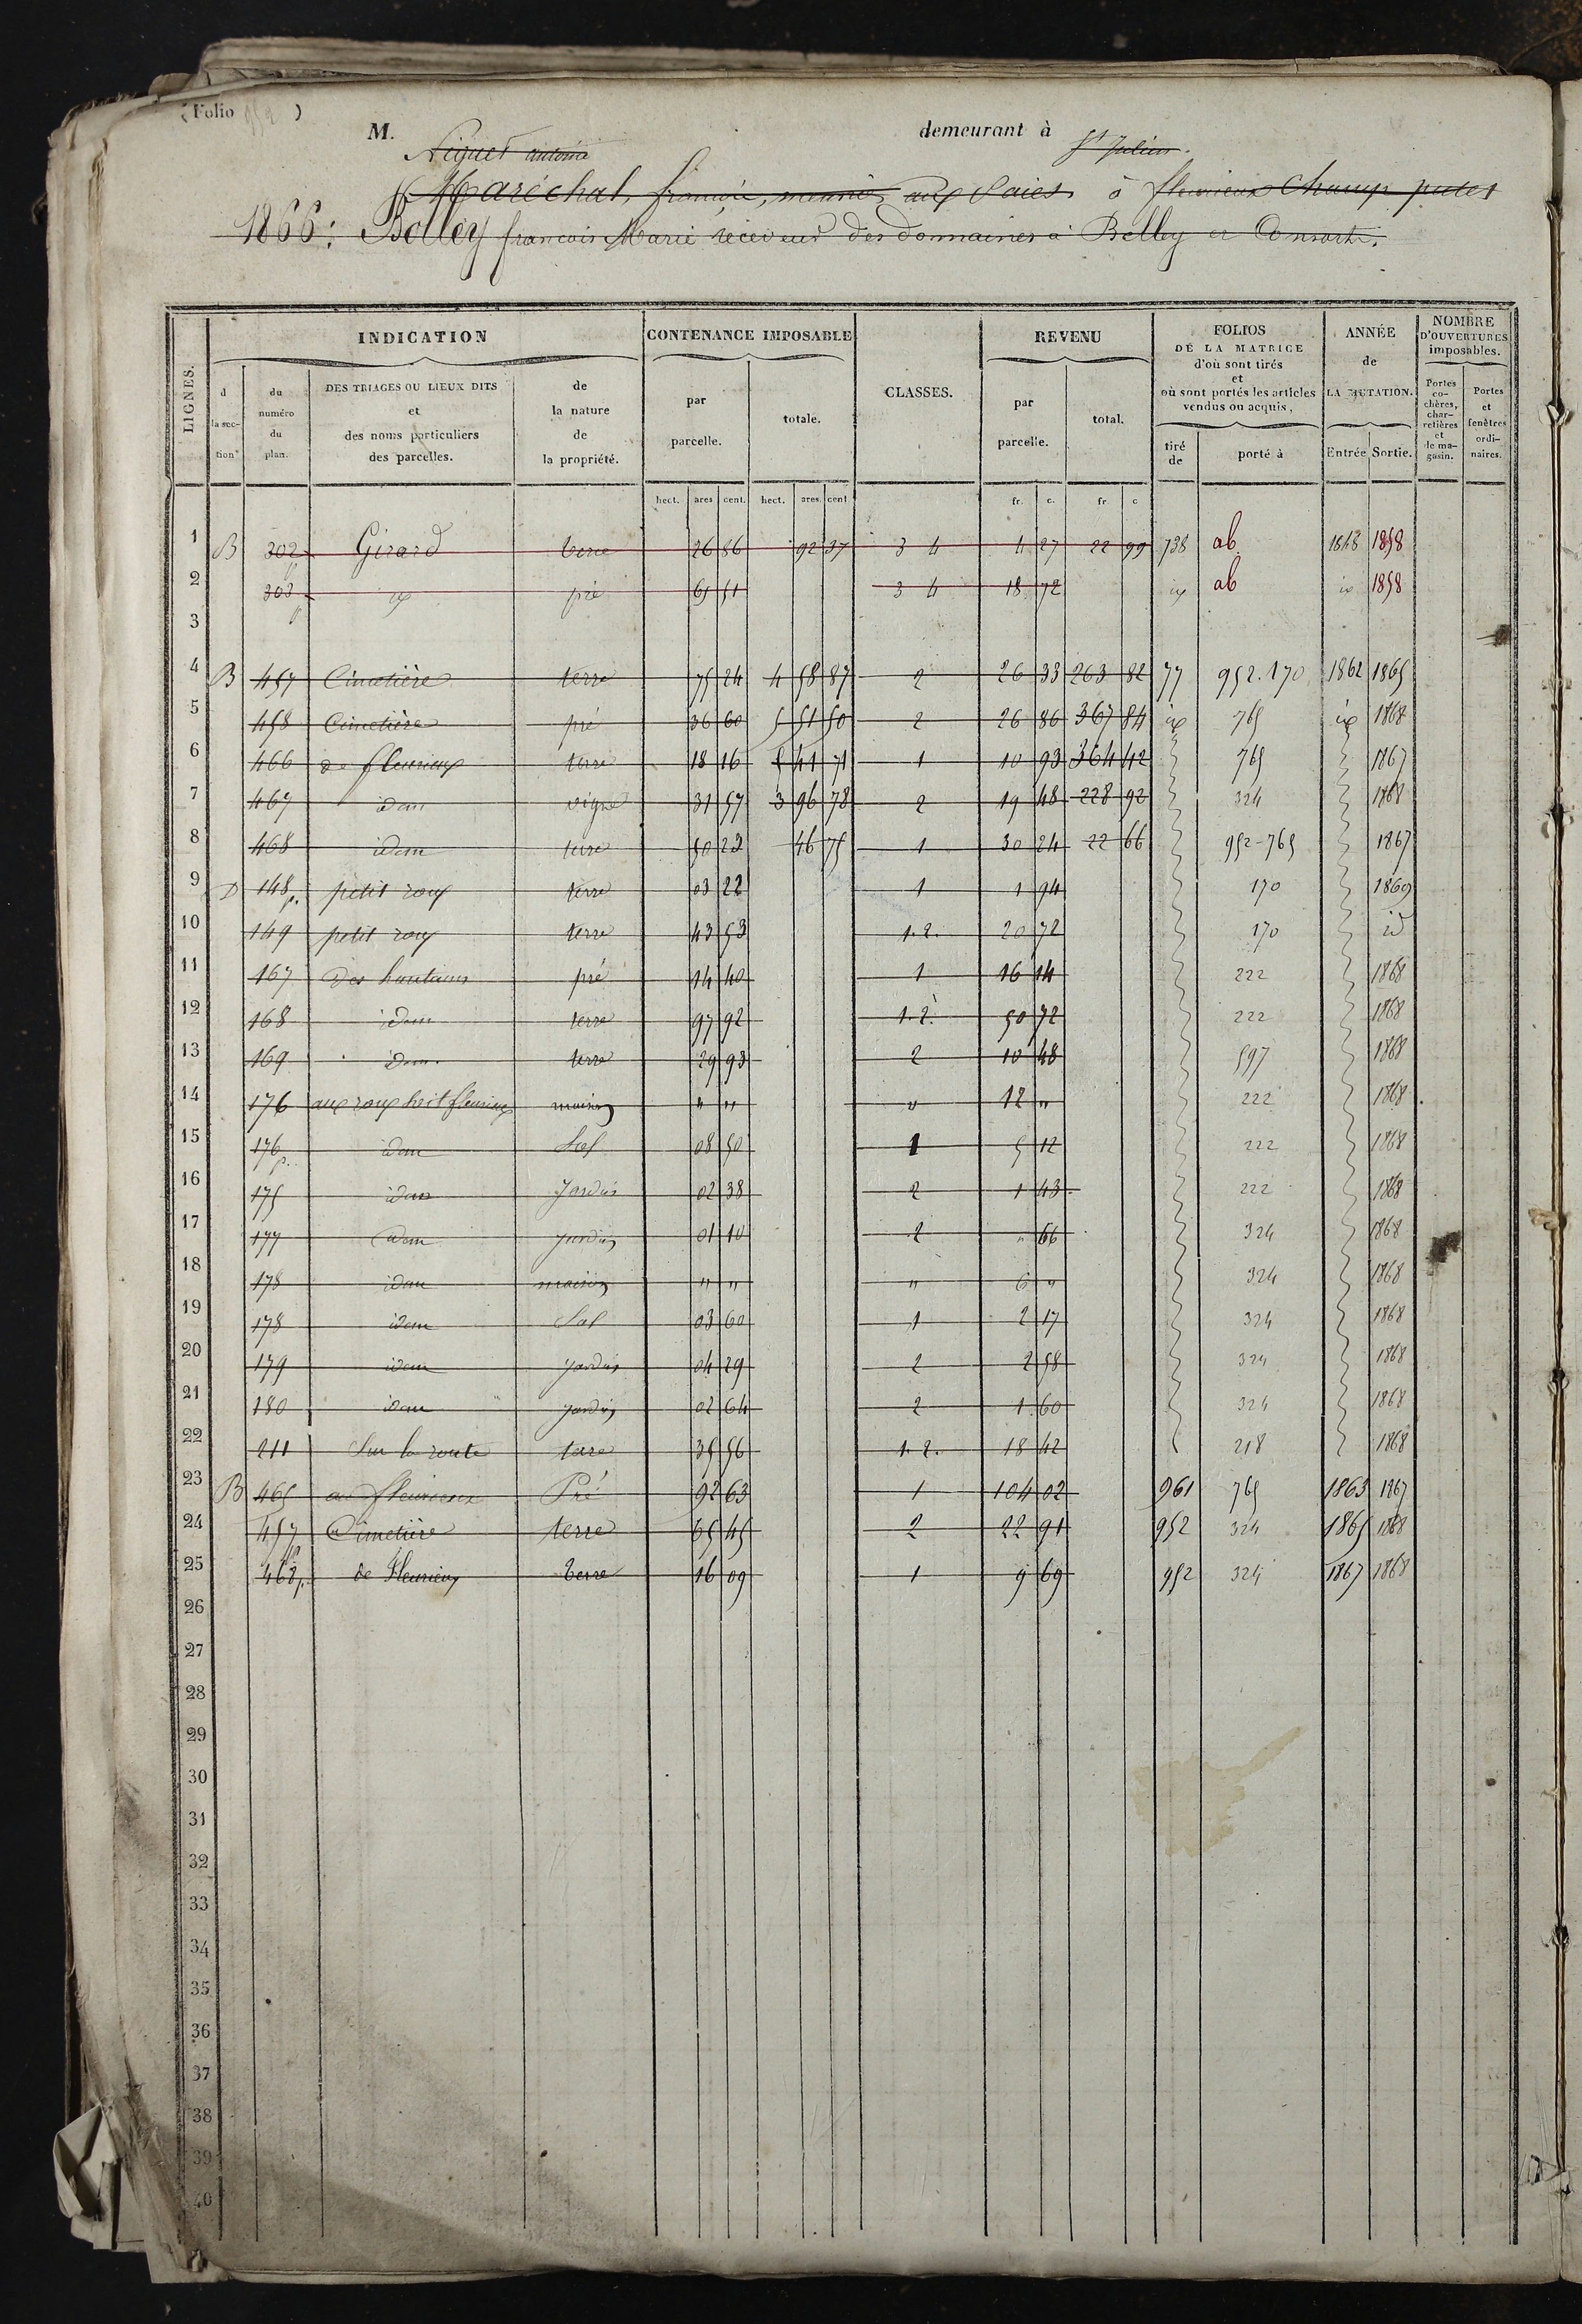 (Folio 952)
M. demeurant à
antoine St Julien.
Maréchal, meunier, aux à fleurieux Champ
1866: Bolley françois Marie receveur des domaines à Belley et Consorts.
LIGNES. INDICATION CONTENANCE IMPOSABLE CLASSES. REVENU FOLIOS DE LA MATRICE d'où sont tirés et où sont portés les articles vendus ou acquis, ANNÉE de LA MUTATION. NOMBRE D'OUVERTURES imposables.
d la section du numéro du plan. DES TRIAGES OU LIEUX DITS et des noms particuliers des parcelles. de la nature de la propriété. par parcelle. totale. par parcelle. total. tiré de porté à Entrée Sortie. Portes cochères, charretières et de magasin. Portes et fenêtres ordinaires.
hect. ares cent. hect. ares. cent. fr. c. fr. c
1 B 302 p Girard terre 26 86 92 37 3 4 4 27 22 99 738 ab 1848 1858
2 303 p id pré 65 51 3 4 18 72 id ab id 1858
3
4 B 457 Cimetière terre 75 24 4 58 87 2 26 33 263 82 77 952.170 1862 1865
5 458 Cimetière pré 36 60 5 51 50 2 26 86 367 84 id 765 id 1868
6 466 de fleurieux terre 18 16 5 41 71 1 10 93 364 42 765 1867
7 467 idem vigne 31 57 3 96 78 2 19 48 228 92 324 1868
8 468 idem terre 50 23 46 75 1 30 24 22 66 952-765 1867
9 D 148 p. petit roux terre 03 22 1 1 94 170 1869
10 149 petit roux terre 43 53 1.2. 20 72 170 id
11 167 Des hautains pré 14 40 1 16 14 222 1868
12 168 idem terre 97 92 1.2. 50 72 222 1868
13 169 idem. terre 29 93 2 10 48 597 1868
14 176 aux roux fleurieux maison " " " 12 " 222 1868
15 176 p. idem Sol 08 50 1 5 12 222 1868
16 175 idem Jardin 02 38 2 1 43 222 1868
17 177 idem jardin 01 10 2 " 66 324 1868
18 178 idem maison " " " 6 " 324 1868
19 178 idem Sol 03 60 1 2 17 324 1868
20 179 idem jardin 04 29 2 2 58 324 1868
21 180 idem jardin 02 64 2 1 60 324 1868
22 211 Sur la route terre 35 56 1.2. 18 42 218 1868
23 B 465 a fleurieux Pré 92 63 1 104 02 961 765 1863 1867
24 457 p Cimetière terre 65 45 2 22 91 952 324 1865 1868
25 468 p. de Fleurieux terre 16 09 1 9 69 952 324 1867 1868
26
27
28
29
30
31
32
33
34
35
36
37
38
39
40